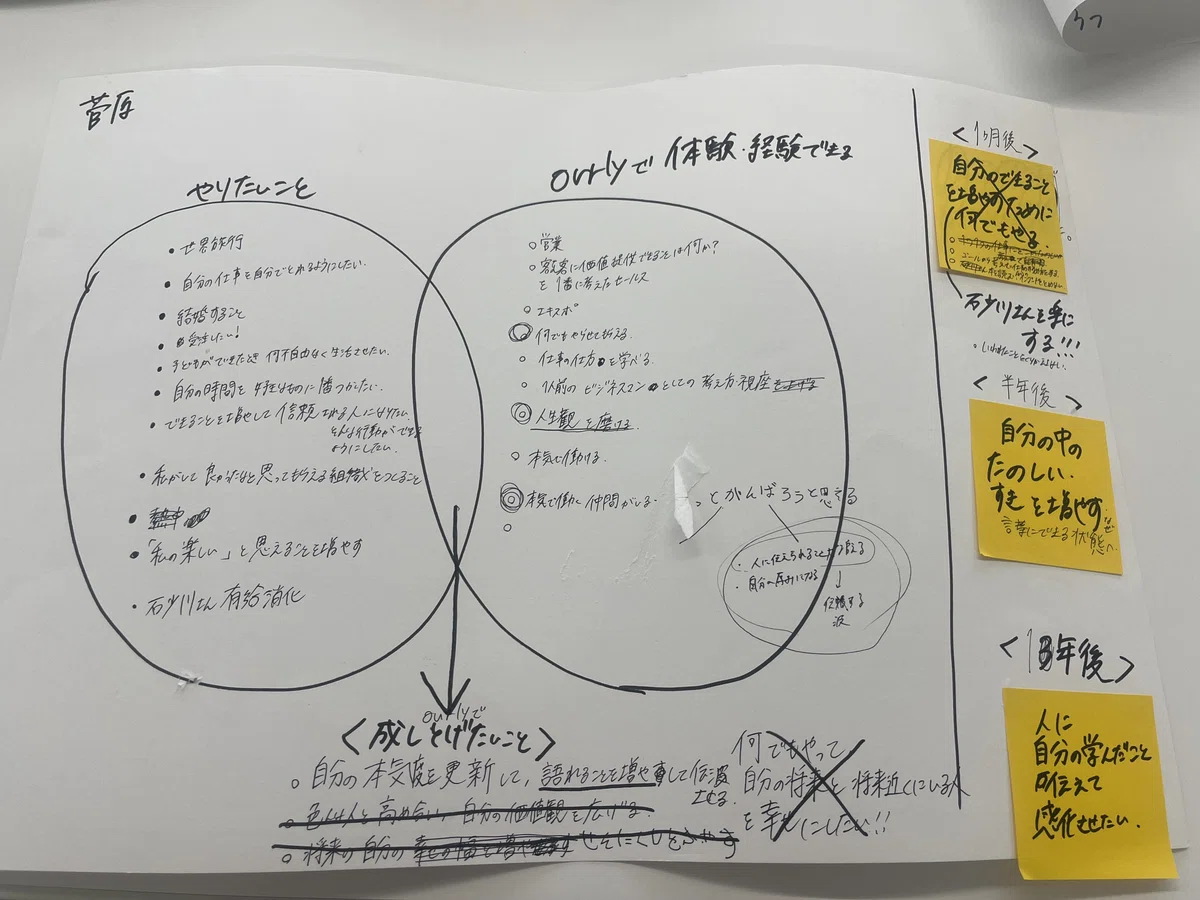 菅原
やりたいこと
・世界旅行
・自分の仕事を自分でとれるようにしたい.
・結婚すること
・受注したい!
・子どもができたとき 何不自由なく生活させたい.
・自分の時間を好きなものに費やしたい.
・できることを増やして信頼される人になりたい
そんな行動ができる
ようにしたい.
・私がして良かったなと思ってもらえる組織をつくること
・「私の楽しい」と思えることを増やす
・石少川さん有給消化
ourlyで 体験・経験できる
○営業
○顧客に価値提供できることは何か?
を1番に考えたセールス
○エキスポ
○何でもやらせて貰える.
○仕事の仕方を学べる.
○1人前のビジネスマンとしての考え方・視座
○人生観を磨ける.
○本気で働ける.
○本気で働く仲間がいる.
○
っとがんばろうと思える
・人に伝えられること
・自分の厚みになる
↓
伝播する
波
ourlyで
<成しとげたいこと>
○自分の本気度を更新して、語れることを増やして伝波
させる.
○色んな人と高め合い 自分の価値観を広げる.
○将来の自分の幸せの幅を増やす
何でもやって
自分の将来と将来近くにいる人
を幸せにしたい!!
<1ヶ月後>
自分のできること
を増やすために
何でもやる.
石少川さんを楽に
する!!!
<半年後>
自分の中の
たのしい.
すきを増やす
なぜ
言葉にできる状態へ
<1年後>
人に
自分の学んだこと
伝えて
感化させたい.
うつ